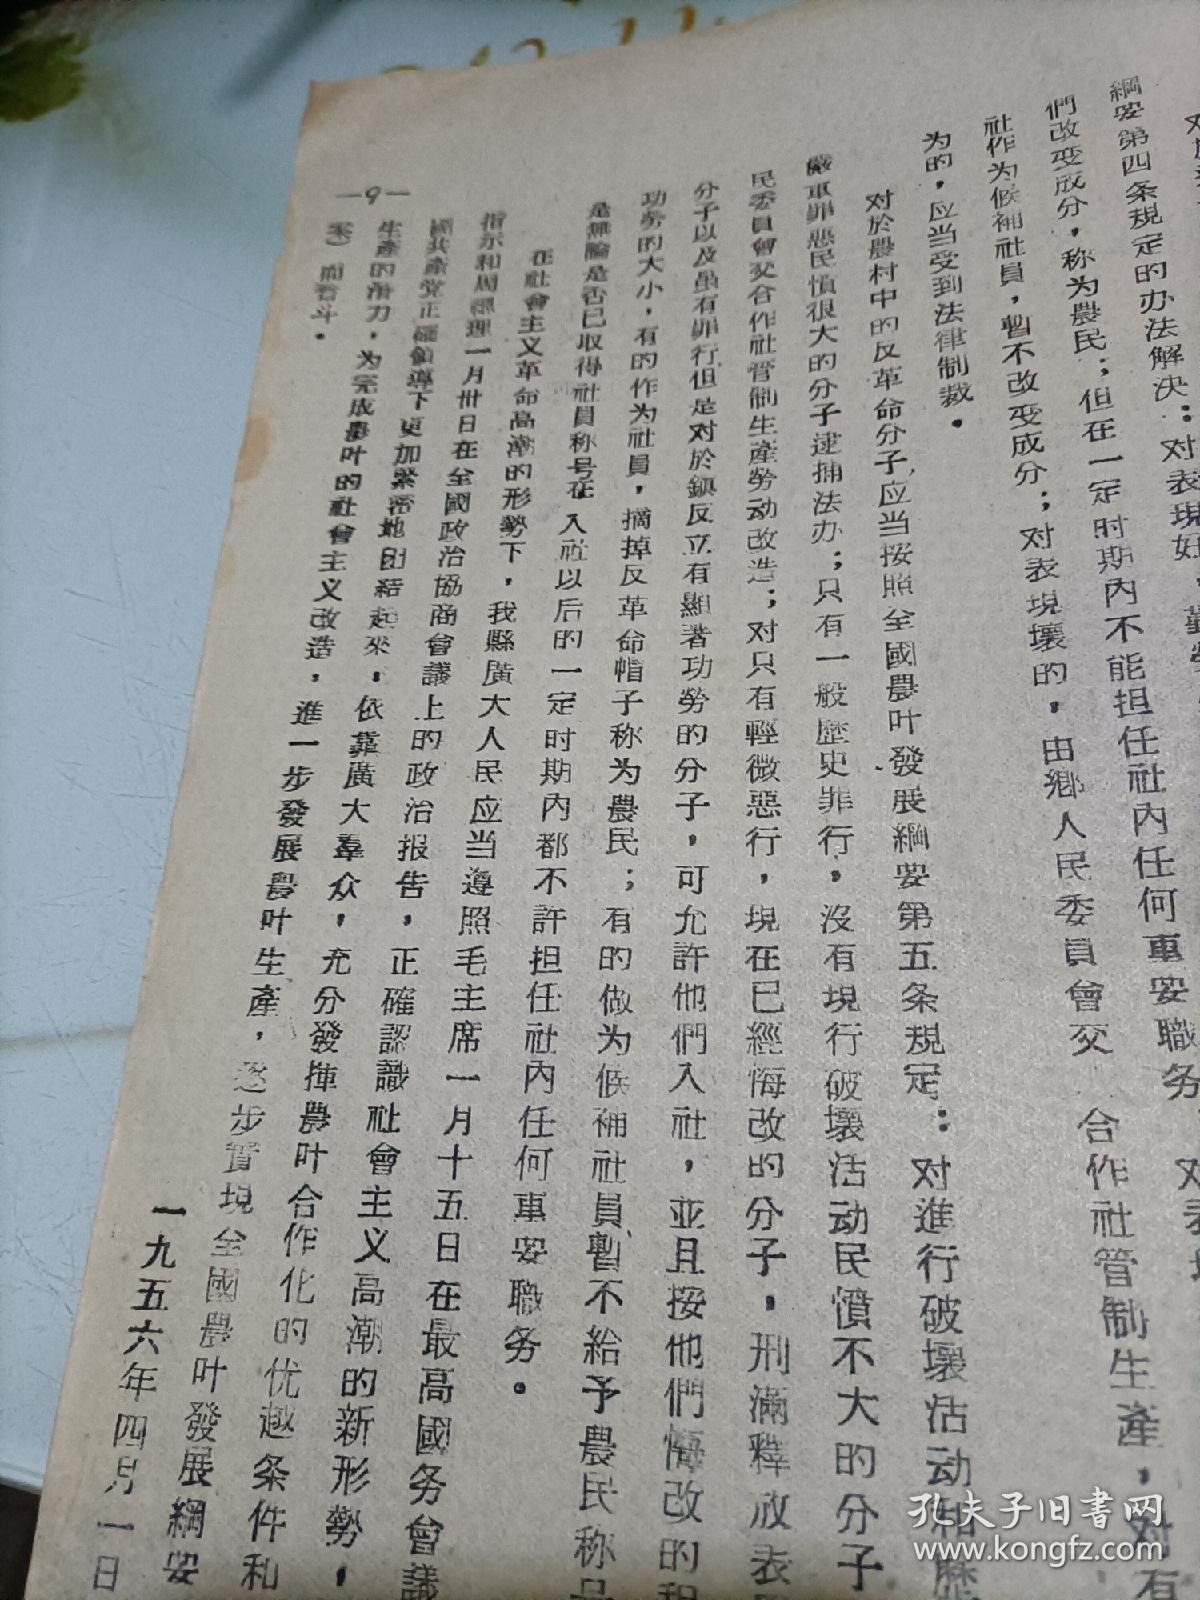 綱要第四条規定的办法解决：对表現好，勤勞
們改变成分，称为農民；但在一定时期內不能担任社內任何重要職务
社作为候補社員，暫不改变成分；对表現壞的，由鄉人民委員會交合作社管制生產，对有
为的，应当受到法律制裁。
对於農村中的反革命分子，应当按照全國農叶發展綱要第五条規定：对進行破壞活动和歷
嚴重罪惡民憤很大的分子逮捕法办；只有一般歷史罪行，沒有現行破壞活动民憤不大的分子
民委員會交合作社管制生產勞动改造；对只有輕微惡行，現在已經悔改的分子，刑滿釋放表
分子以及虽有罪行，但是对於鎮反立有顯著功勞的分子，可允許他們入社，並且按他們悔改的程
功勞的大小，有的作为社員，摘掉反革命帽子称为農民；有的做为候補社員，暫不給予農民称号
是無論是否已取得社員称号在入社以后的一定时期內都不許担任社內任何重要職务。
在社會主义革命高潮的形勢下，我縣廣大人民应当遵照毛主席一月十五日在最高國务會議
指示和周總理一月卅日在全國政治協商會議上的政治报告，正確認識社會主义高潮的新形勢，
國共產党正確領導下更加緊密地团結起來，依靠廣大羣众，充分發揮農叶合作化的优越条件和
生產的潛力，为完成農叶的社會主义改造，進一步發展農叶生產，逐步實現全國農叶發展綱要
（案）而奋斗。
一九五六年四月一日
—9—
孔夫子旧書网
www.kongfz.com